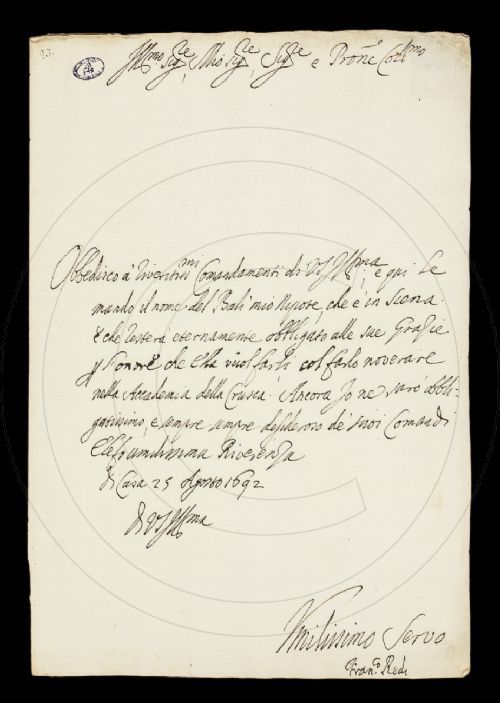 Ill.mo Sig.re, Mio Sig.re, Sig.re e Pron.e Col.mo
Obbedisco à riveriti.mi Comandamenti di V S Ill.ma, e qui Le
mando il nome del Balì mio Nipote, che è in Siena
& che resterà eternamente obbligato alle sue Grazie
che Ella vuol farli col farlo noverare
nella Accademia della Crusca. Ancora Io ne sarò obbli-
gatissimo, e sempre sempre desideroso de' suoi Comandi
Le fo umilissima Riverenza
Di Casa 25 Agosto 1692
Di V S Ill.ma
Umilissimo Servo
Fran.co Redi